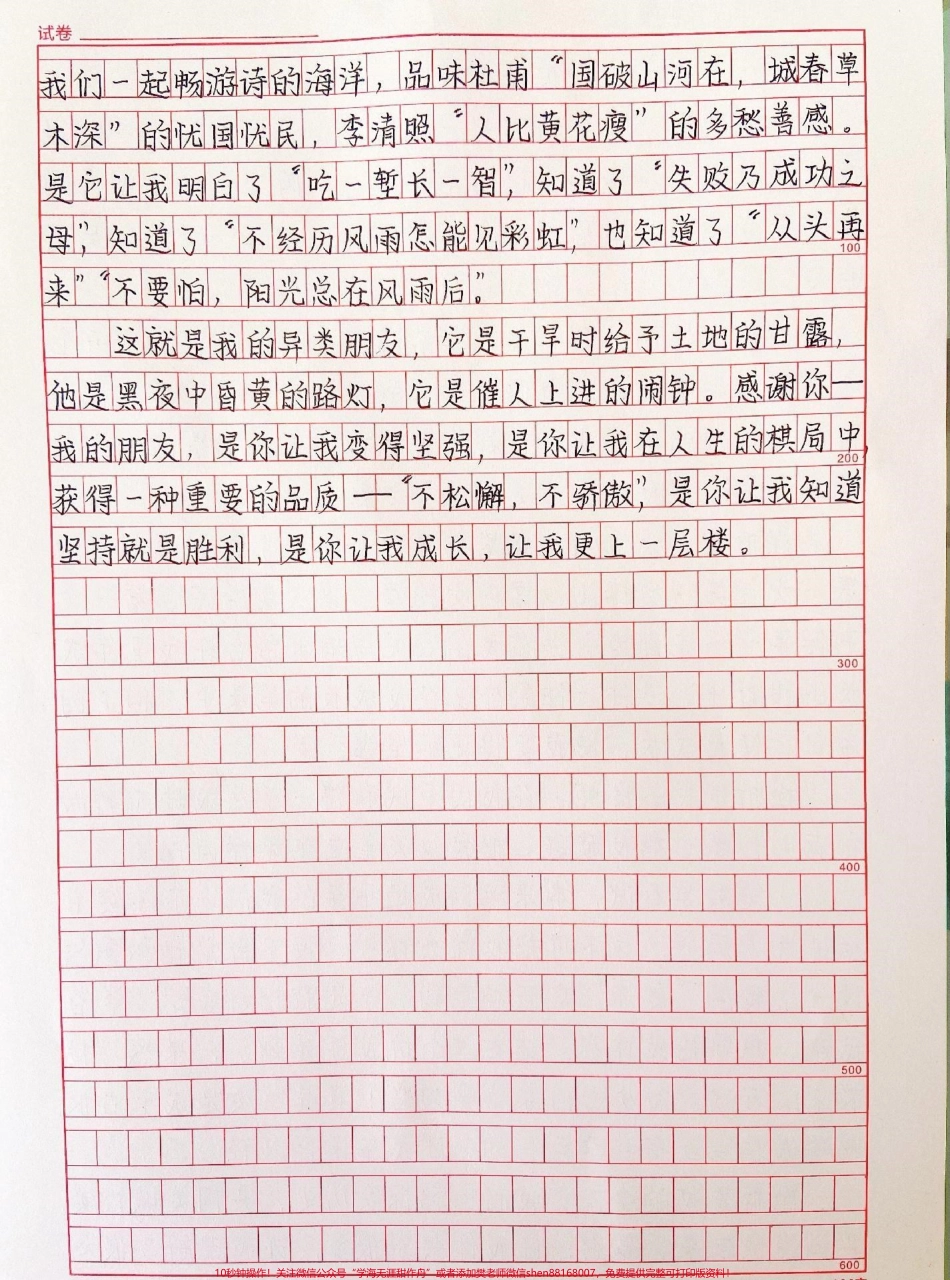 试卷
我们一起畅游诗的海洋，品味杜甫“国破山河在，城春草
木深”的忧国忧民，李清照“人比黄花瘦”的多愁善感。
是它让我明白了“吃一堑长一智”，知道了“失败乃成功之
母”，知道了“不经历风雨怎能见彩虹”，也知道了“从头再
100
来”“不要怕，阳光总在风雨后。”
这就是我的异类朋友，它是干旱时给予土地的甘露，
他是黑夜中昏黄的路灯，它是催人上进的闹钟。感谢你——
我的朋友，是你让我变得坚强，是你让我在人生的棋局中
200
获得一种重要的品质——“不松懈，不骄傲”，是你让我知道
坚持就是胜利，是你让我成长，让我更上一层楼。
300
400
500
600
10秒钟操作！关注微信公众号“学海无涯甜作舟”或者添加樊老师微信shen88168007，免费提供完整可打印版资料！